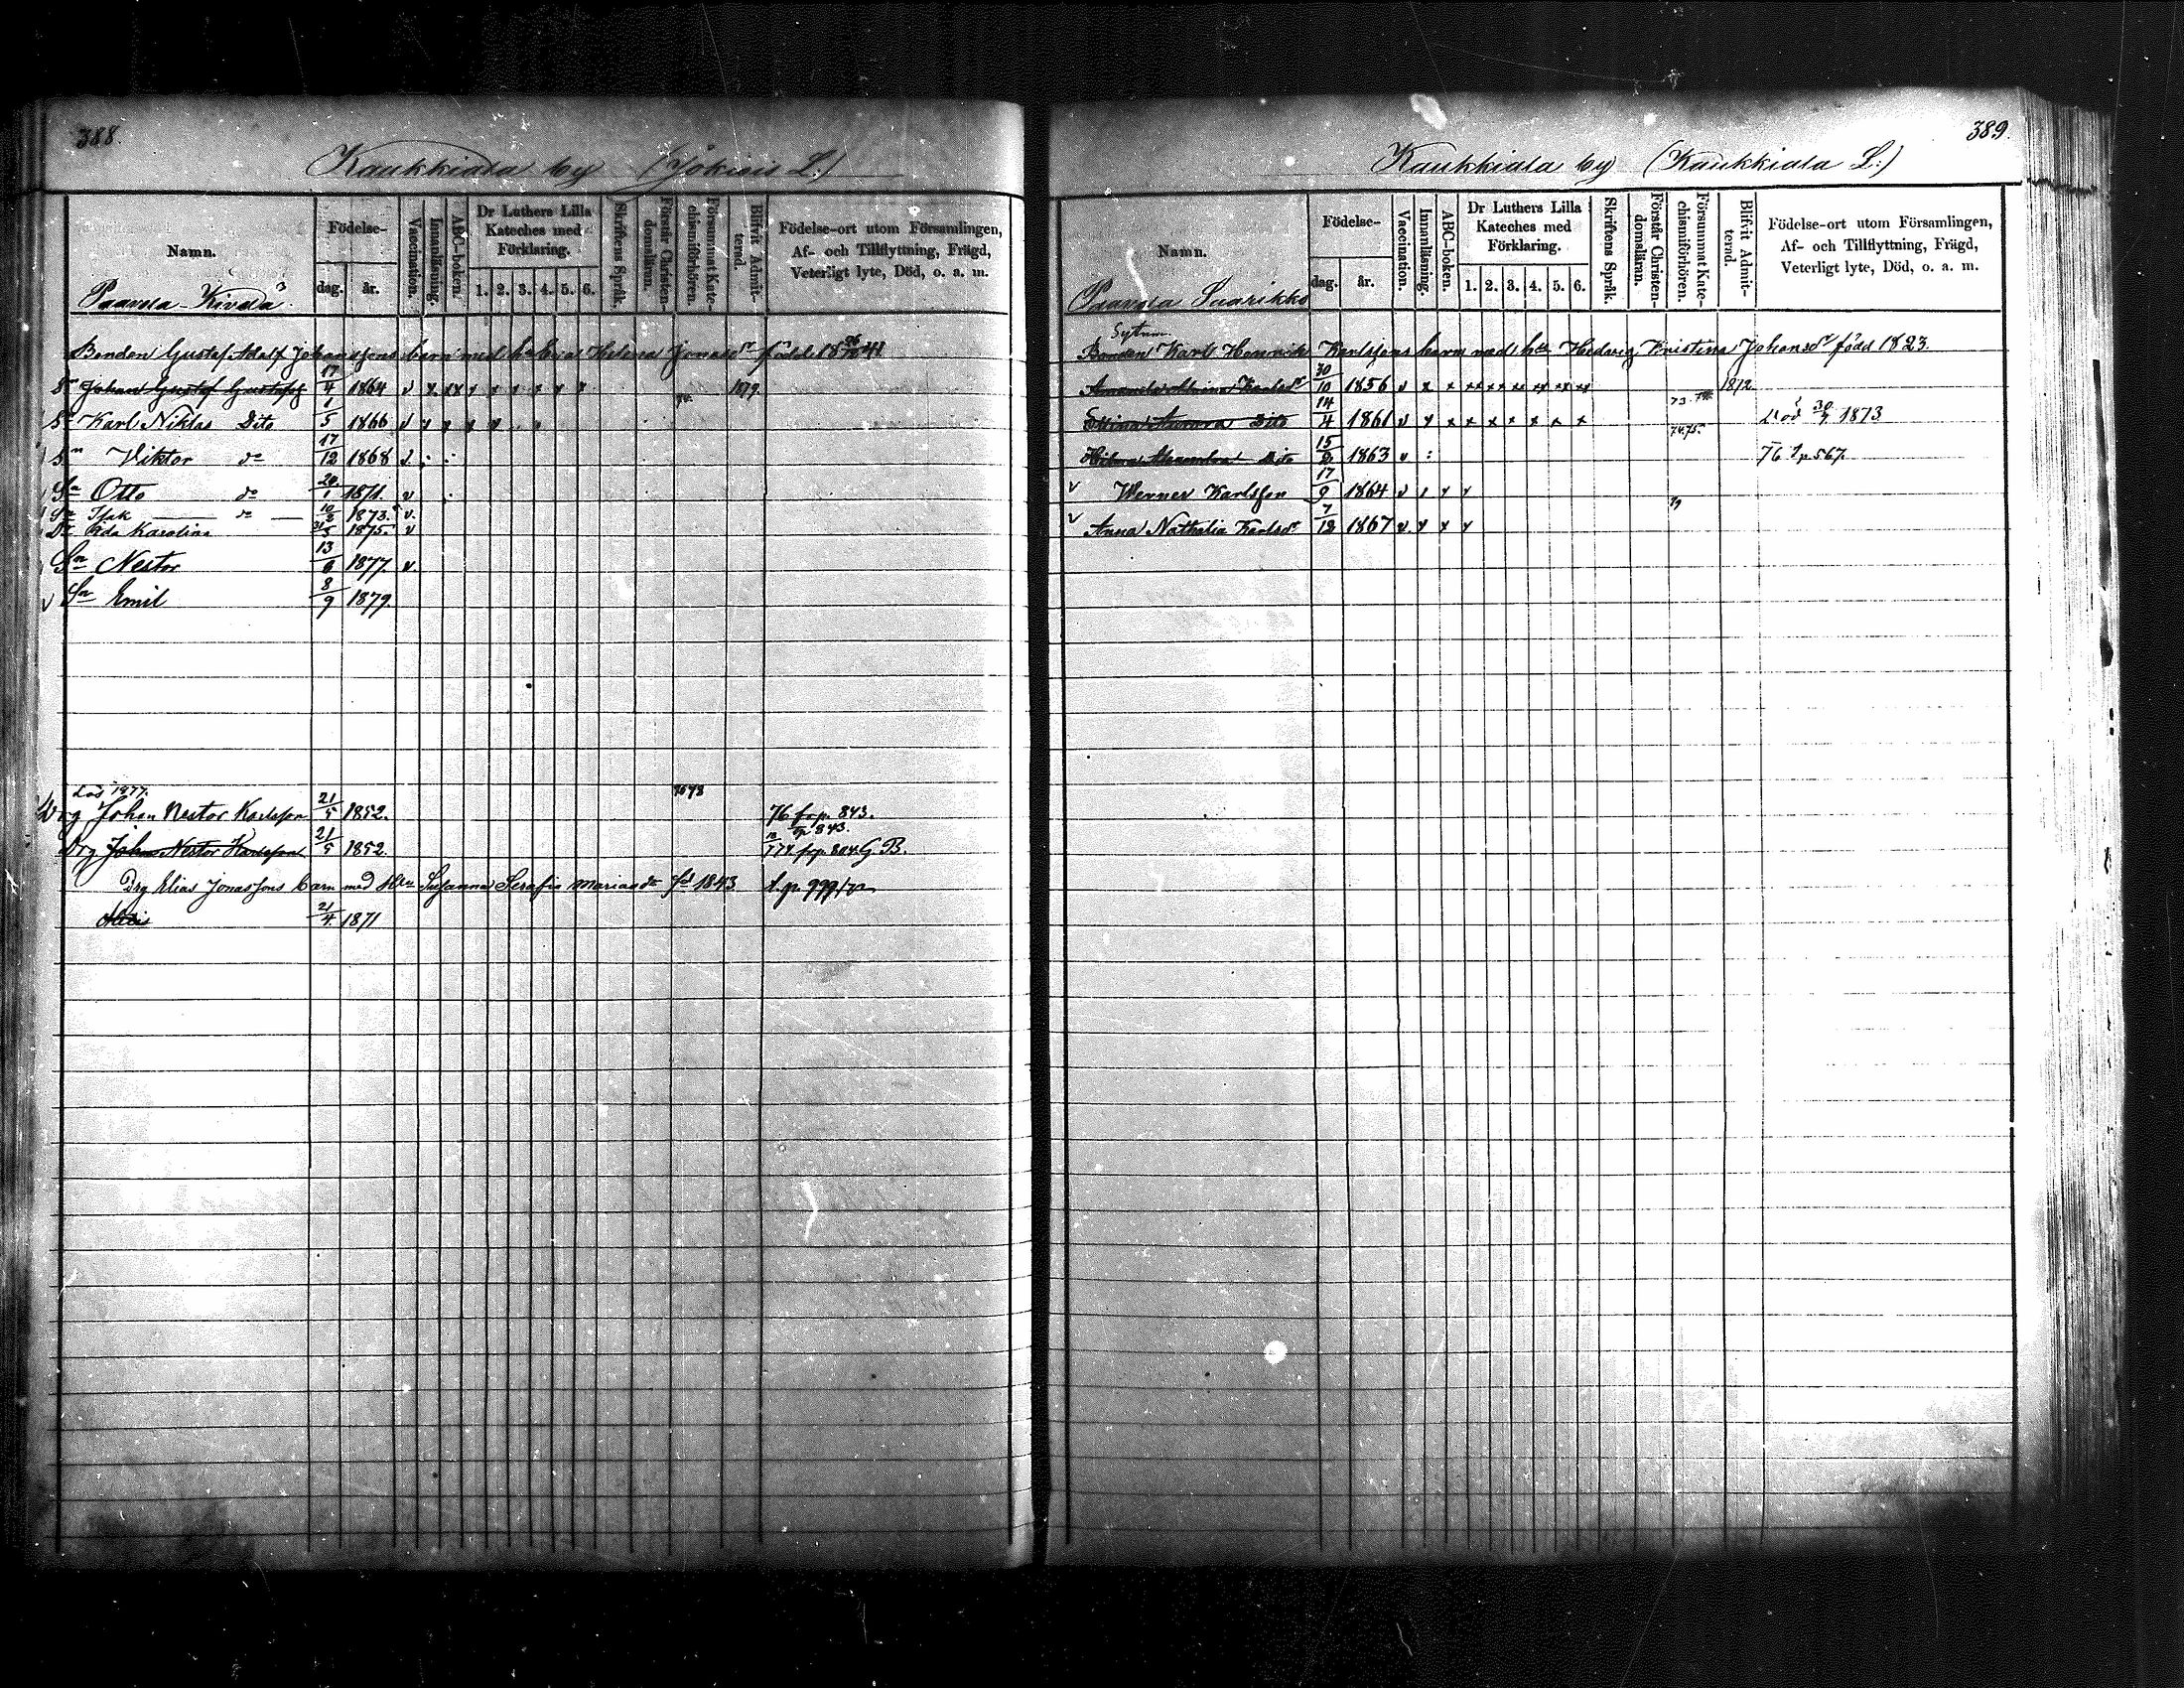 388.
Kaukkiala by (Jokiois L.)
Namn.
Födelse-
dag.
år.
Vaccination.
Innanläsning.
ABC-boken.
Dr Luthers Lilla
Kateches med
Förklaring.
1. 2. 3. 4. 5. 6.
Skriftens Språk.
Förstår Christen-
domsläran.
Försummat Kate-
chismiförhören.
Blifvit Admit-
terad.
Födelse-ort utom Församlingen,
Af- och Tillflyttning, Frägd,
Veterligt lyte, Död, o. a. m.
Paavola
Bonden Gustaf Adolf Johanssons barn med h Helena Jonasdr född
Sn Johan Gustaf Gustafss 17/4 1864 v x xx x x x x x x 1879.
Sn Karl Niklas Dito 1/5 1866 v x x x x
Sn Viktor do 17/12 1868 v
Sn Otto do 20/1 1871. v
Sn Isak do 10/2 1873. v
Dr Ida Karolina 31/5 1875. v
Sn Nestor 13/6 1877. v
Sn Emil 8/9 1879.
död 1877.
Drg Johan Nestor Karlsson 21/5 1852. 76 fr p. 843.
Drg Johan Nestor Karlsson 21/5 1852. fr p. 804. G B.
Drg Elias Jonassons barn med Hu Susanna Serafia Mariasdr fd 1843 t. p. 999
21/4 1871
389.
Kaukkiala by (Kaukkiala L:)
Namn.
Födelse-
dag.
år.
Vaccination.
Innanläsning.
ABC-boken.
Dr Luthers Lilla
Kateches med
Förklaring.
1. 2. 3. 4. 5. 6.
Skriftens Språk.
Förstår Christen-
domsläran.
Försummat Kate-
chismiförhören.
Blifvit Admit-
terad.
Födelse-ort utom Församlingen,
Af- och Tillflyttning, Frägd,
Veterligt lyte, Död, o. a. m.
Paavola Saarikko
Sytnm.
Bonden Karl Henrik Karlssons barn med hu Hedvig Kristina Johansdr född 1823.
Amanda Karlsdr 30/10 1856 v x x xx xx xx xx xx xx 1872.
Aurora Dito 14/4 1861 v x x x x x x x x Död 30/7 1873
Hilma Alexandra Dito 15/2 1863 v : 74.75. 76 t p 567.
v Werner Karlsson 17/9 1864 v x x x
v Anna Nathalia Karlsdr 7/12 1867 v x x x